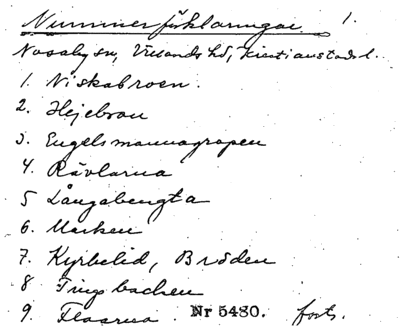 Nummerförklaringar. 1.
Nosaby sn, Villands hd, Kristianstads l.
1. Niskabroen.
2. Hejebron
3. Engelsmannagropen
4. Rävlarna
5 Långabengta
6. Marken
7. Kyrbelid, Bröden
8 Tingsbacken
9. Floarna. Nr 5480. forts.